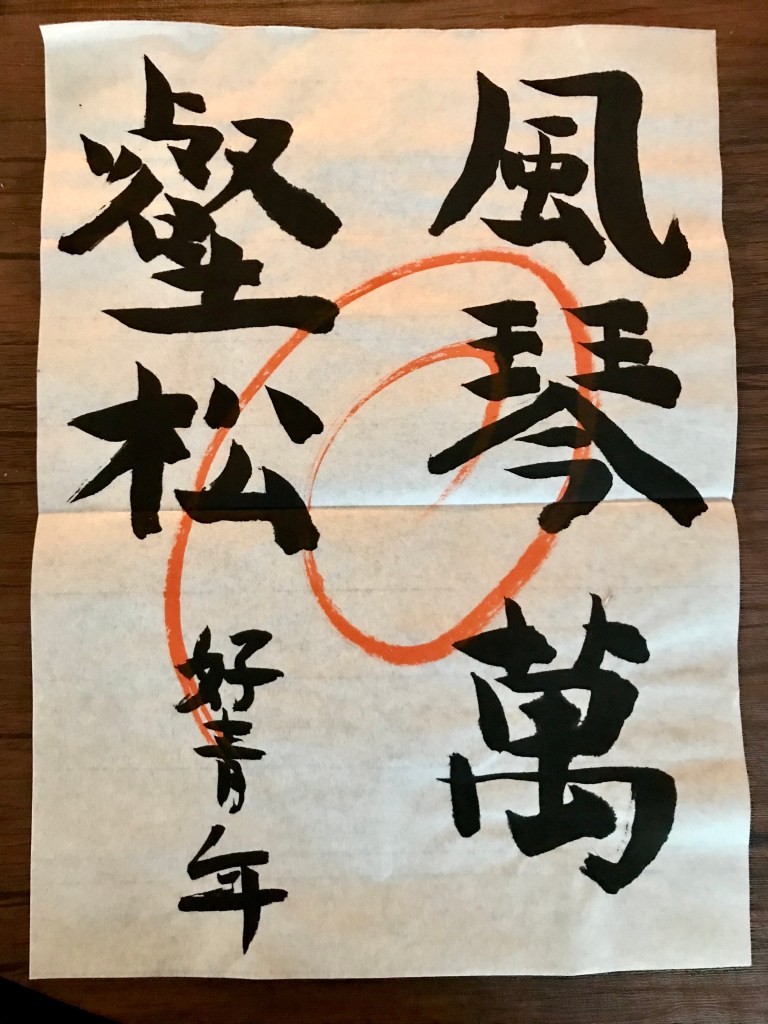 風琴萬
壑松
好青年